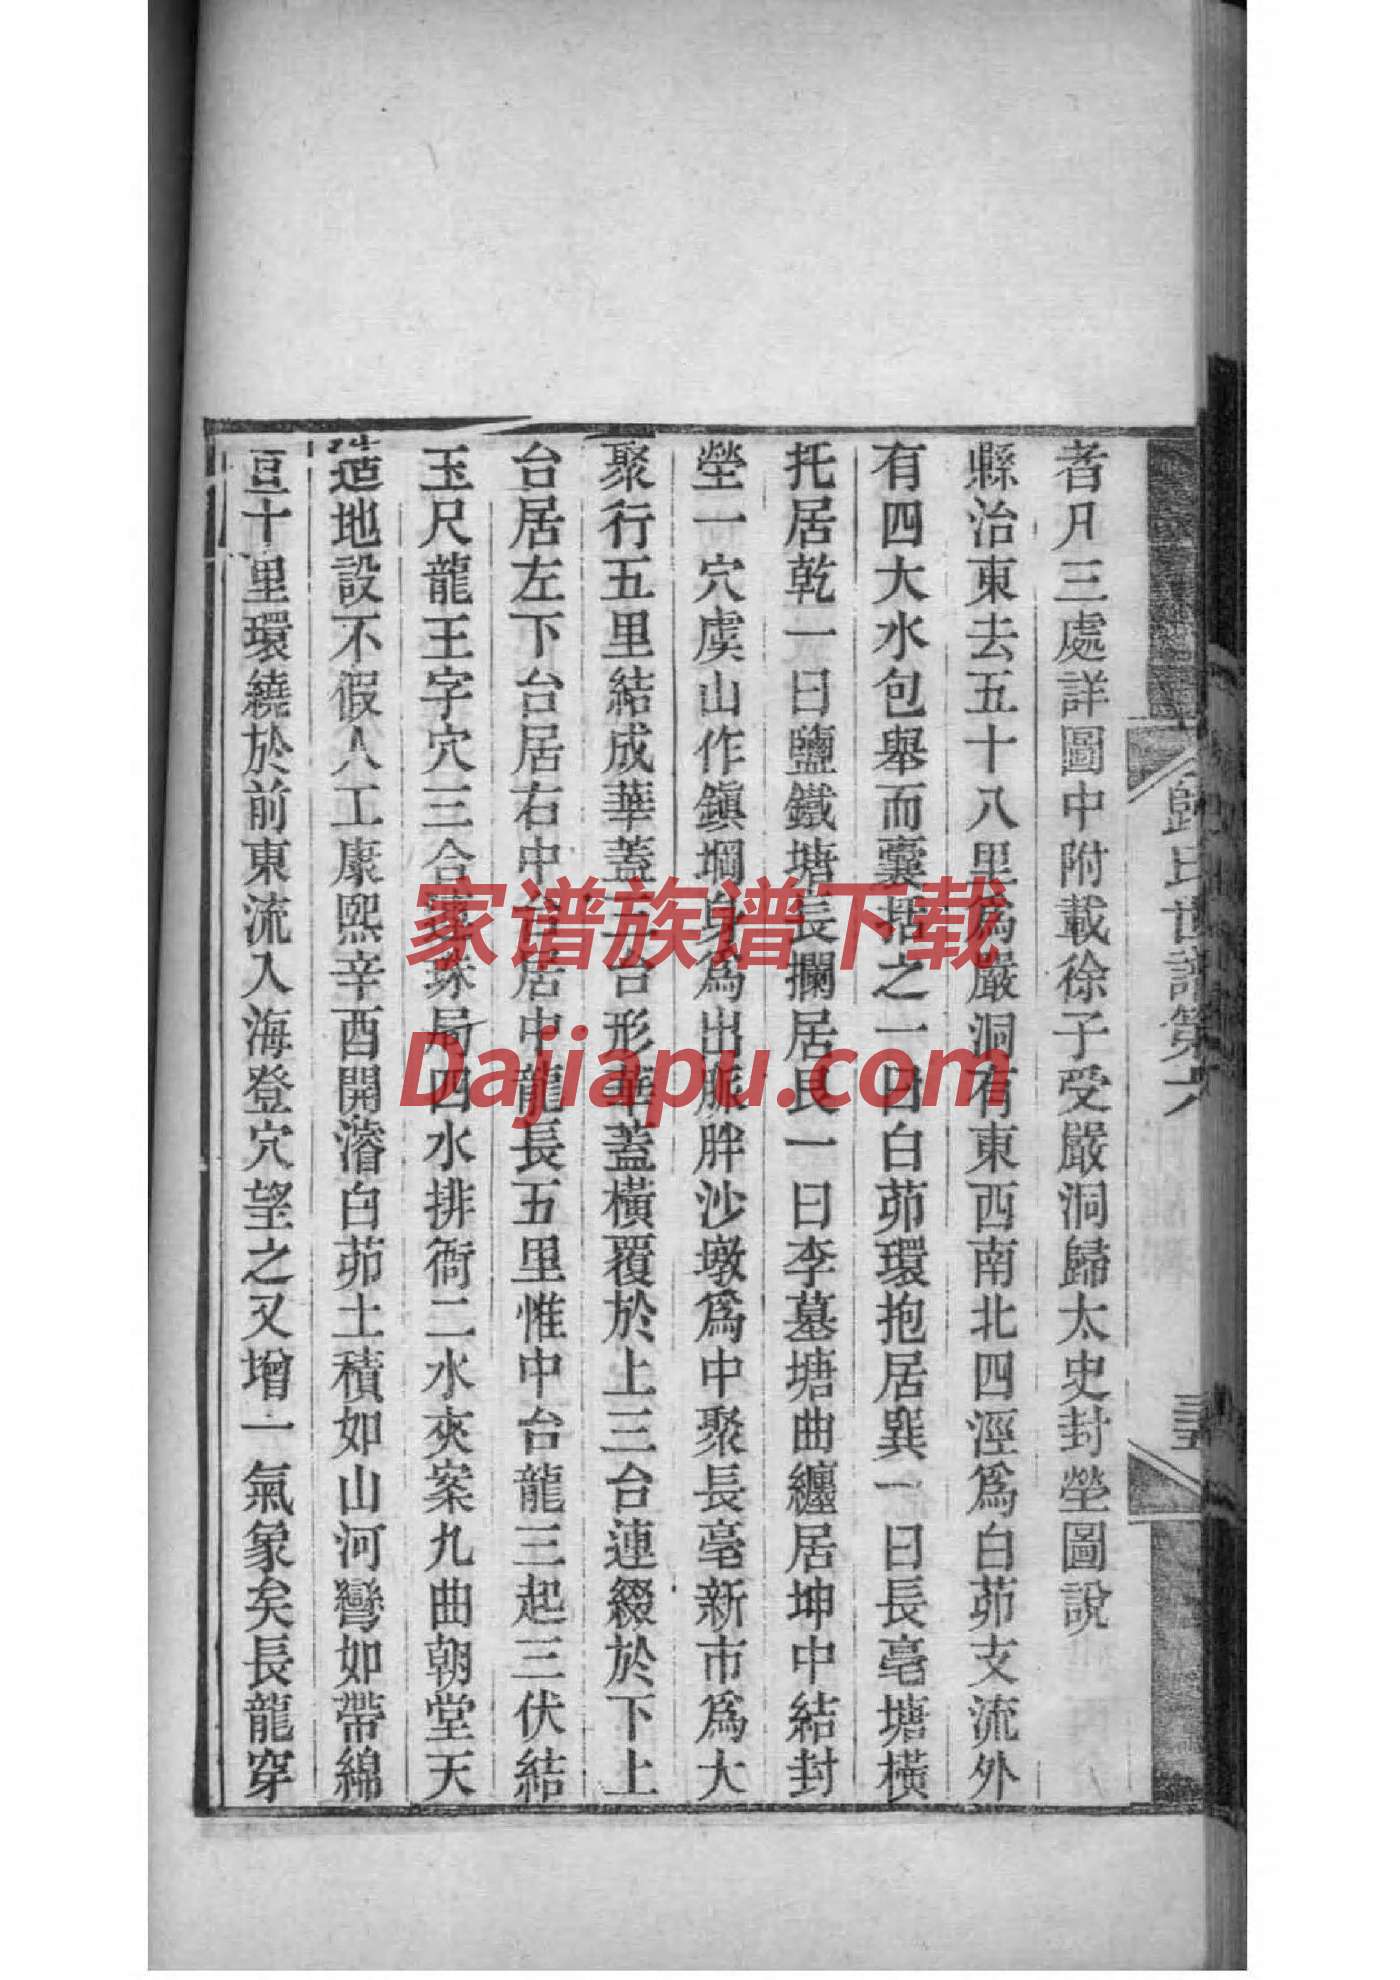 歸氏世譜第六
三五
者凡三處詳圖中附載徐子受嚴洞歸太史封塋圖說
縣治東去五十八里爲嚴洞有東西南北四涇爲白茆支流外
有四大水包舉而囊括之一曰白茆環抱居巽一曰長亳塘橫
托居乾一曰鹽鐵塘長攔居艮一曰李墓塘曲纏居坤中結封
塋一穴虞山作鎭堈身爲出脈胖沙墩爲中聚長亳新市爲大
聚行五里結成華蓋三台形華蓋橫覆於上三台連綴於下上
台居左下台居右中台居中龍長五里惟中台龍三起三伏結
玉尺龍王字穴三合 珠局四水排衙二水夾案九曲朝堂天
造地設不假人工康熙辛酉開濬白茆土積如山河彎如帶綿
亘十里環繞於前東流入海登穴望之又增一氣象矣長龍穿
家谱族谱下载
Dajiapu.com